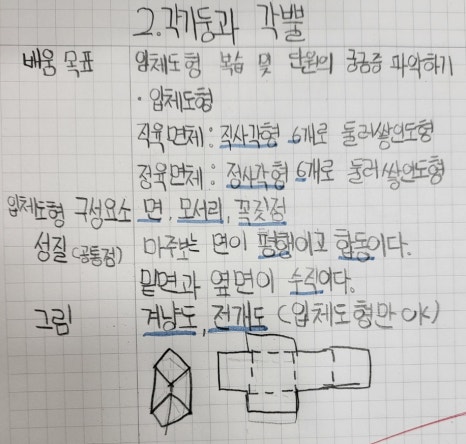 2. 각기둥과 각뿔
배움 목표 입체도형 복습 및 단원의 궁금증 파악하기
· 입체도형
직육면체 : 직사각형 6개로 둘러쌓인도형
정육면체 : 정사각형 6개로 둘러쌓인도형
입체도형 구성요소 면, 모서리, 꼭짓점
성질(공통점) 마주보는 면이 평행이고 합동이다.
밑면과 옆면이 수직이다.
그림 겨냥도, 전개도 (입체도형만 OK)